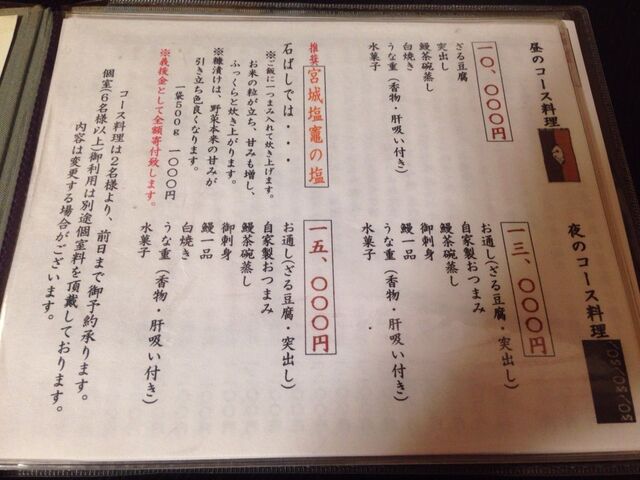 昼のコース料理
一〇、〇〇〇円
ざる豆腐
突出し
鰻茶碗蒸し
白焼き
うな重(香物・肝吸い付き)
水菓子
夜のコース料理
一三、〇〇〇円
お通し(ざる豆腐・突出し)
自家製おつまみ
鰻茶碗蒸し
御刺身
鰻一品
うな重(香物・肝吸い付き)
水菓子
一五、〇〇〇円
お通し(ざる豆腐・突出し)
自家製おつまみ
鰻茶碗蒸し
御刺身
鰻一品
白焼き
うな重(香物・肝吸い付き)
水菓子
推奨 宮城塩竈の塩
石ばしでは・・・
※ご飯に一つまみ入れて炊き上げます。
お米の粒が立ち、甘みも増し、
ふっくらと炊き上がります。
※糠漬けは、野菜本来の甘みが
引き立ち色良くなります。
一袋500g 一〇〇〇円
※義援金として全額寄付致します。
コース料理は2名様より、前日まで御予約承ります。
個室(6名様以上)御利用は別途個室料を頂戴しております。
内容は変更する場合がございます。